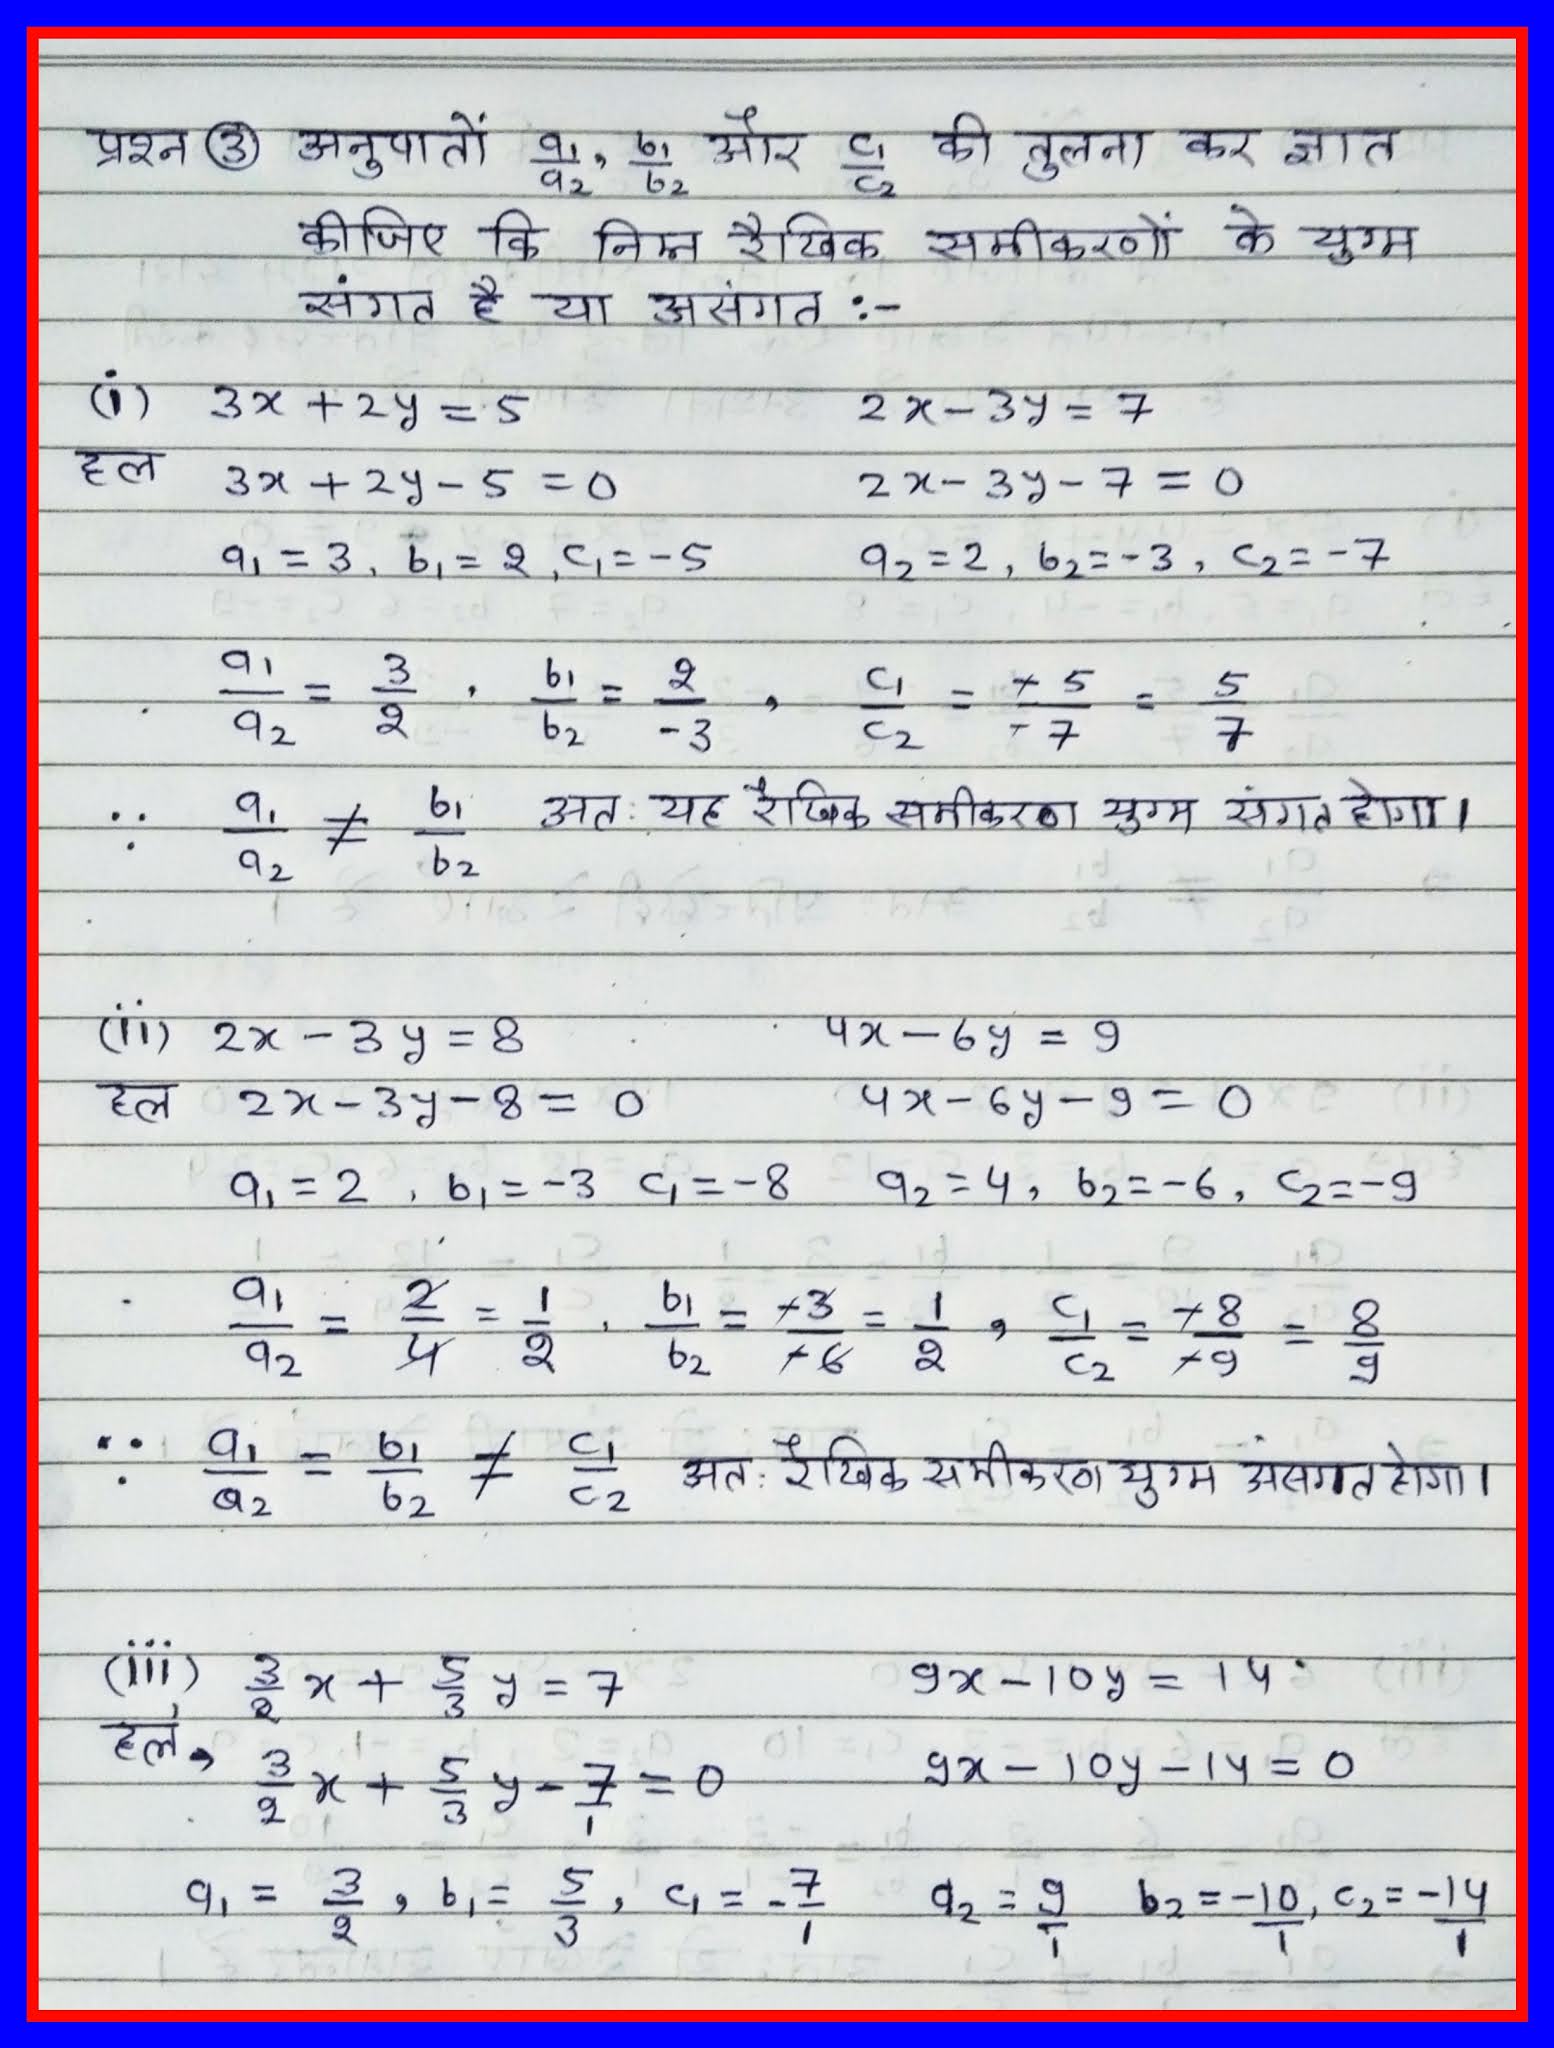 प्रश्न ③ अनुपातों a₁/a₂, b₁/b₂ और c₁/c₂ की तुलना कर ज्ञात
कीजिए कि निम्न रैखिक समीकरणों के युग्म
संगत है या असंगत :-
(i) 3x + 2y = 5 2x - 3y = 7
हल 3x + 2y - 5 = 0 2x - 3y - 7 = 0
a₁ = 3, b₁ = 2, c₁ = -5 a₂ = 2, b₂ = -3, c₂ = -7
a₁/a₂ = 3/2, b₁/b₂ = 2/-3, c₁/c₂ = -5/-7 = 5/7
∵ a₁/a₂ ≠ b₁/b₂ अतः यह रैखिक समीकरण युग्म संगत होगा।
(ii) 2x - 3y = 8 4x - 6y = 9
हल 2x - 3y - 8 = 0 4x - 6y - 9 = 0
a₁ = 2, b₁ = -3 c₁ = -8 a₂ = 4, b₂ = -6, c₂ = -9
a₁/a₂ = 2/4 = 1/2, b₁/b₂ = -3/-6 = 1/2, c₁/c₂ = -8/-9 = 8/9
∵ a₁/a₂ = b₁/b₂ ≠ c₁/c₂ अतः रैखिक समीकरण युग्म असंगत होगा।
(iii) 3/2 x + 5/3 y = 7 9x - 10y = 14
हल, 3/2 x + 5/3 y - 7/1 = 0 9x - 10y - 14 = 0
a₁ = 3/2, b₁ = 5/3, c₁ = -7/1 a₂ = 9/1 b₂ = -10/1, c₂ = -14/1